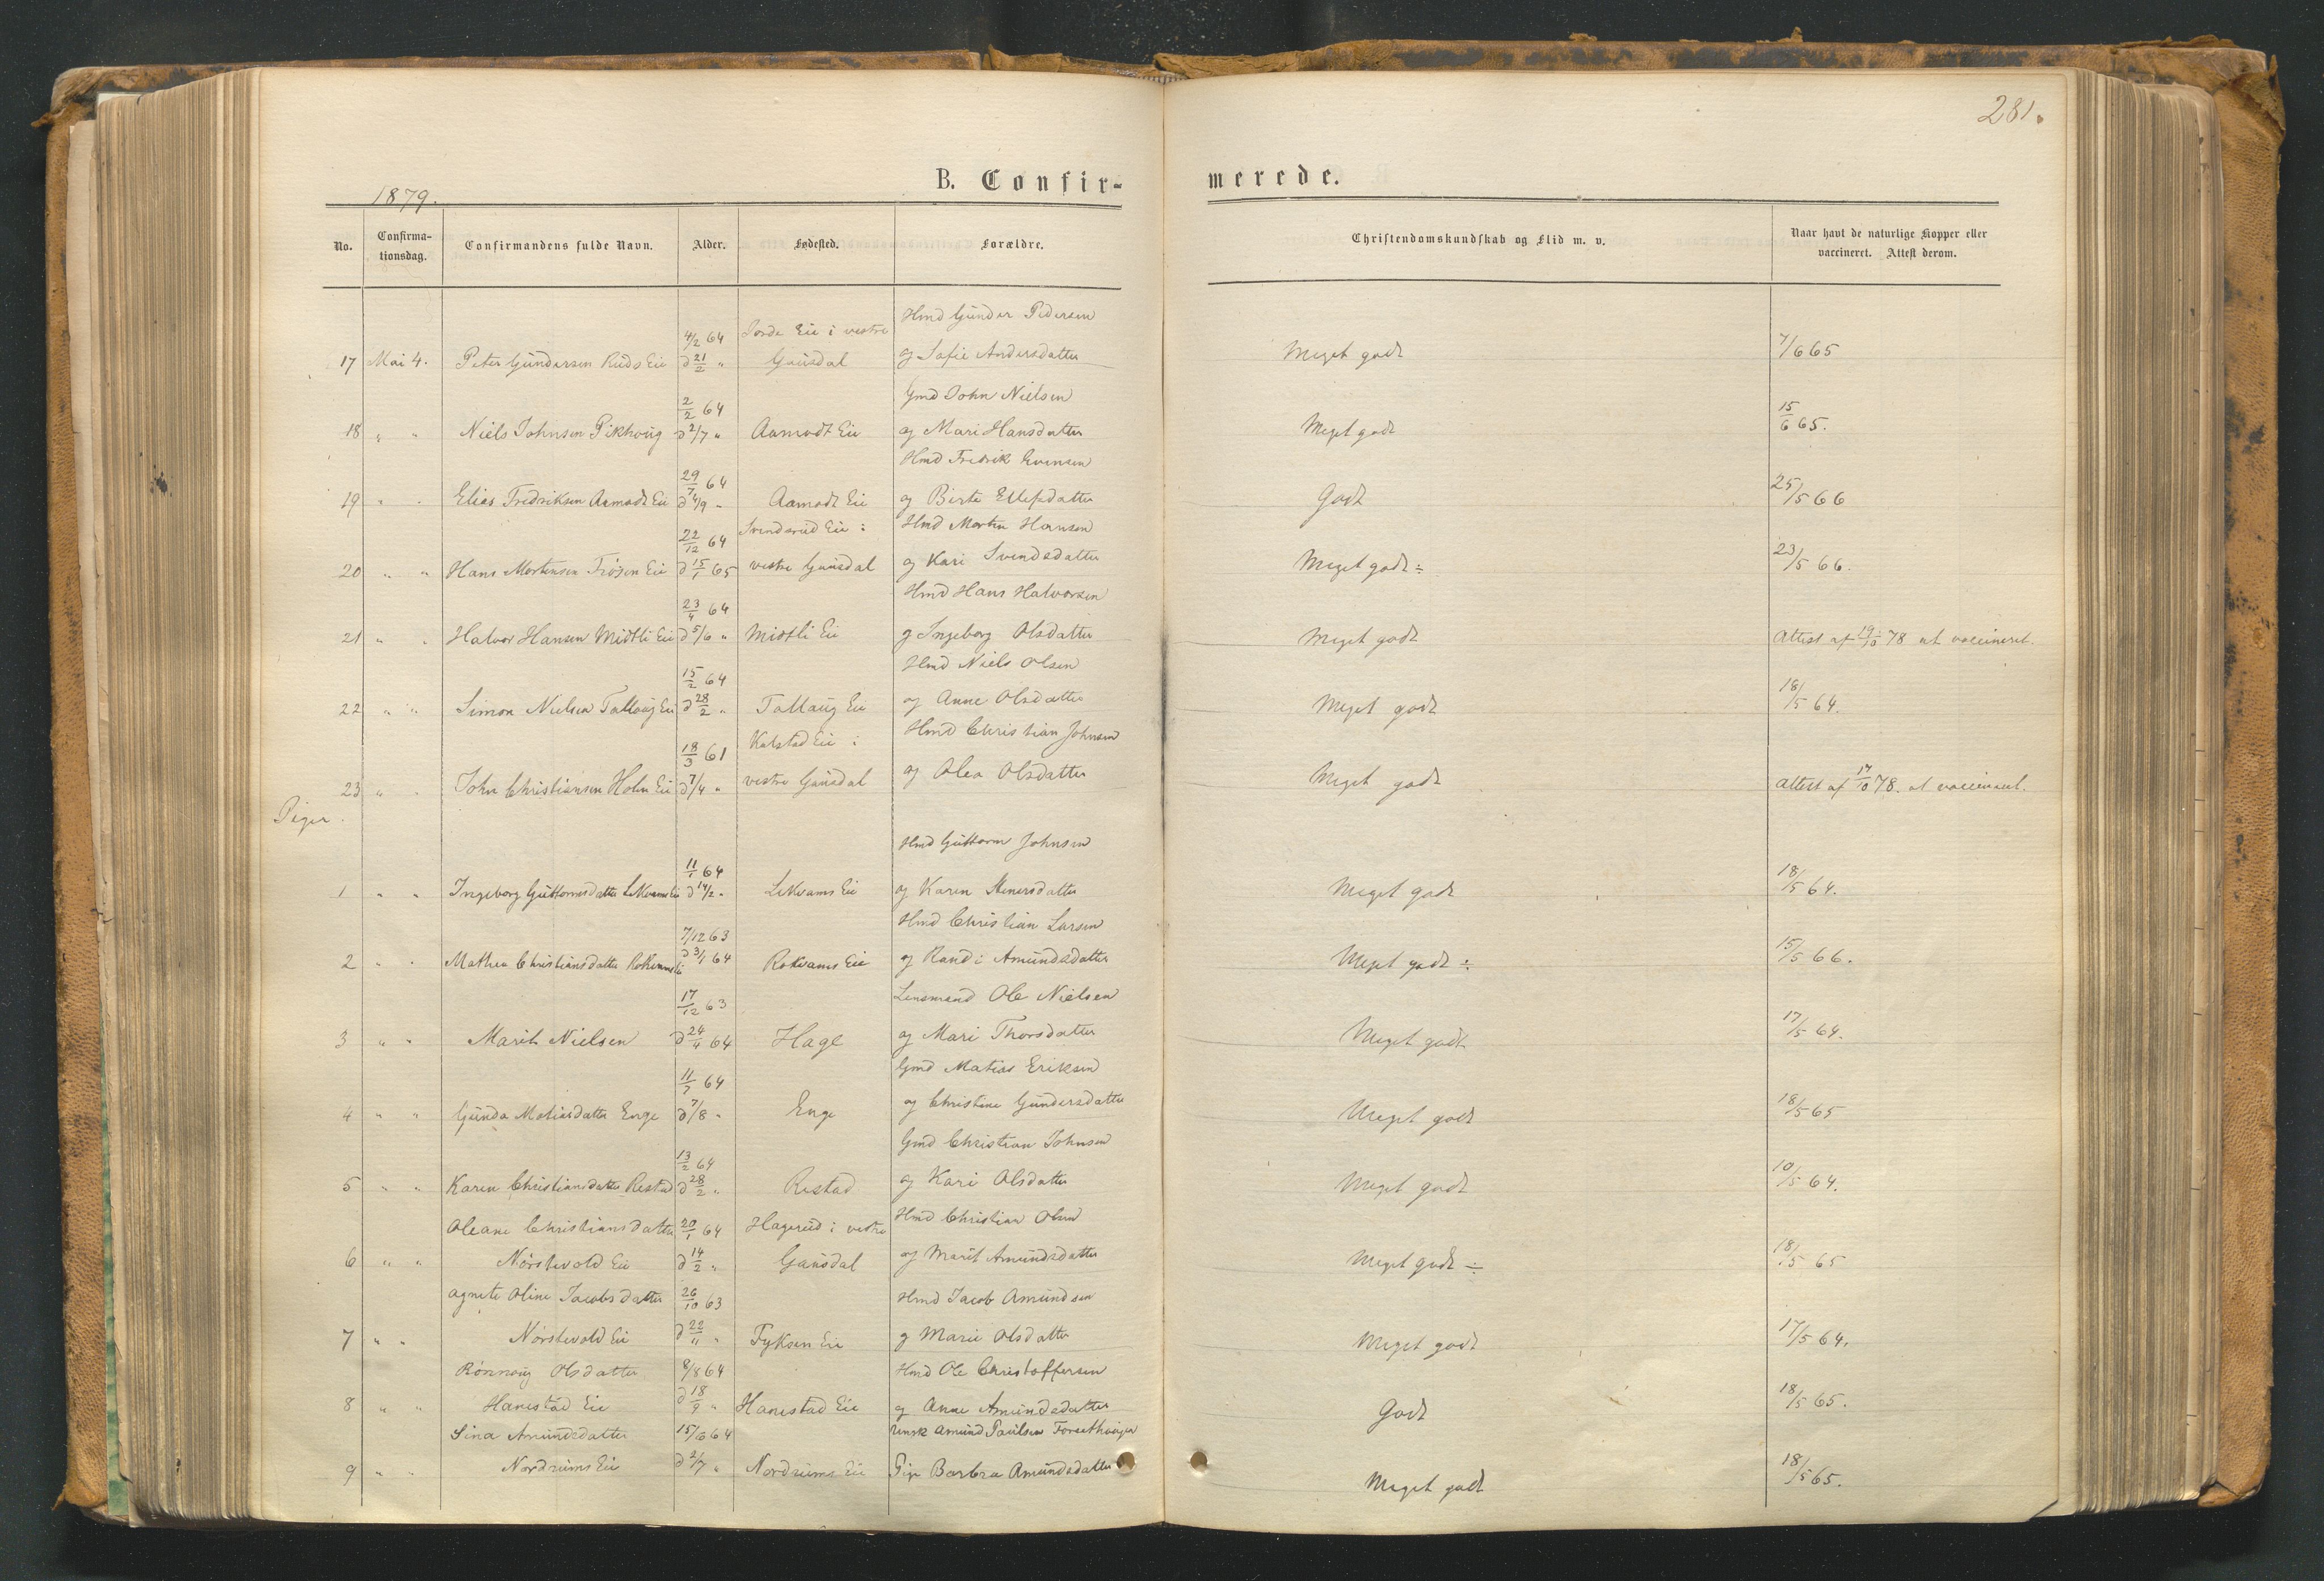 281.
B. Confir-
merede.
1879.
No.
Confirma-
tionsdag.
Confirmandens fulde Navn.
Alder.
Fødested.
Forældre.
Christendomskundskab og Flid m. v.
Naar havt de naturlige Kopper eller
vaccineret. Attest derom.
4/2 64 Jorde Eie i vestre Hmd Gunder Pedersen
17 Mai 4. Peter Gundersen Ruds Eie d 21/2 " Gausdal og Sofie Andersdatter Meget godt 7/6 65
2/2 64 Gmd John Nielsen
18 " " Niels Johnsen Pikhoug d 2/7 " Aamodt Eie og Mari Hansdatter Meget godt 15/6 65.
29/7 64 Hmd Fredrik Evensen
19 " " Elias Fredriksen Aamodt Eie d 4/9 " Aamodt Eie og Birte Ellefsdatter Godt 25/5 66
22/12 64 Svendsrud Eie i Hmd Morten Hansen
20 " " Hans Mortensen Frøsen Eie d 15/1 65 vestre Gausdal og Kari Svendsdatter Meget godt ÷ 23/5 66.
23/4 64 Hmd Hans Halvorsen
21 " " Halvor Hansen Midtli Eie d 5/6 " Midtli Eie og Ingeborg Olsdatter Meget godt Attest af 19/10 78 at vaccineret.
15/2 64 Hmd Niels Olsen
22 " " Simon Nielsen Tallaug Eie d 28/2 " Tallaug Eie og Anne Olsdatter Meget godt 18/5 64.
18/3 61 Kalstad Eie i Hmd Christian Johnsen
23 " " John Christiansen Holm Eie d 7/4 " vestre Gausdal og Olea Olsdatter Meget godt Attest af 17/10 78. at vaccineret.
Piger.
11/1 64 Hmd Guttorm Johnsen
1 " " Ingeborg Guttormsdatter Lekvams Eie d 14/2 " Lekvams Eie og Karen Stenersdatter Meget godt 18/5 64.
7/12 63 Hmd Christian Larsen
2 " " Mathea Christiansdatter Rokvams Eie d 3/1 64 Rokvams Eie og Randi Amundsdatter Meget godt ÷ 15/5 66.
17/12 63 Lensmand Ole Nielsen
3 " " Marit Nielsen d 24/4 64 Hage og Mari Thorsdatter Meget godt 17/5 64.
11/7 64 Gmd Matias Eriksen
4 " " Gunda Matiasdatter Enge d 7/8 " Enge og Christine Gundersdatter Meget godt 18/5 65
13/2 64 Gmd Christian Johnsen
5 " " Karen Christiansdatter Restad d 28/2 " Restad og Kari Olsdatter Meget godt 10/5 64.
Oleane Christiansdatter 20/1 64 Hagerud i vestre Hmd Christian Olsen
6 " " Nørstevold Eie d 14/2 " Gausdal og Marit Amundsdatter Meget godt ÷ 18/5 65
Agnete Oline Jacobsdatter 26/10 63 Hmd Jacob Amundsen
7 " " Nørstevold Eie d 22/11 " Fyksen Eie og Marie Olsdatter Meget godt 17/5 64.
Rønnaug Olsdatter 8/8 64 Hmd Ole Christoffersen
8 " " Hanestad Eie d 18/9 " Hanestad Eie og Anne Amundsdatter Godt 18/5 65.
Sina Amundsdatter 15/6 64 Ungk Amund Paulsen Forsethaugen
9 " " Nordrums Eie d 2/7 " Nordrums Eie Pige Barbra Amundsdatter Meget godt 18/5 65.